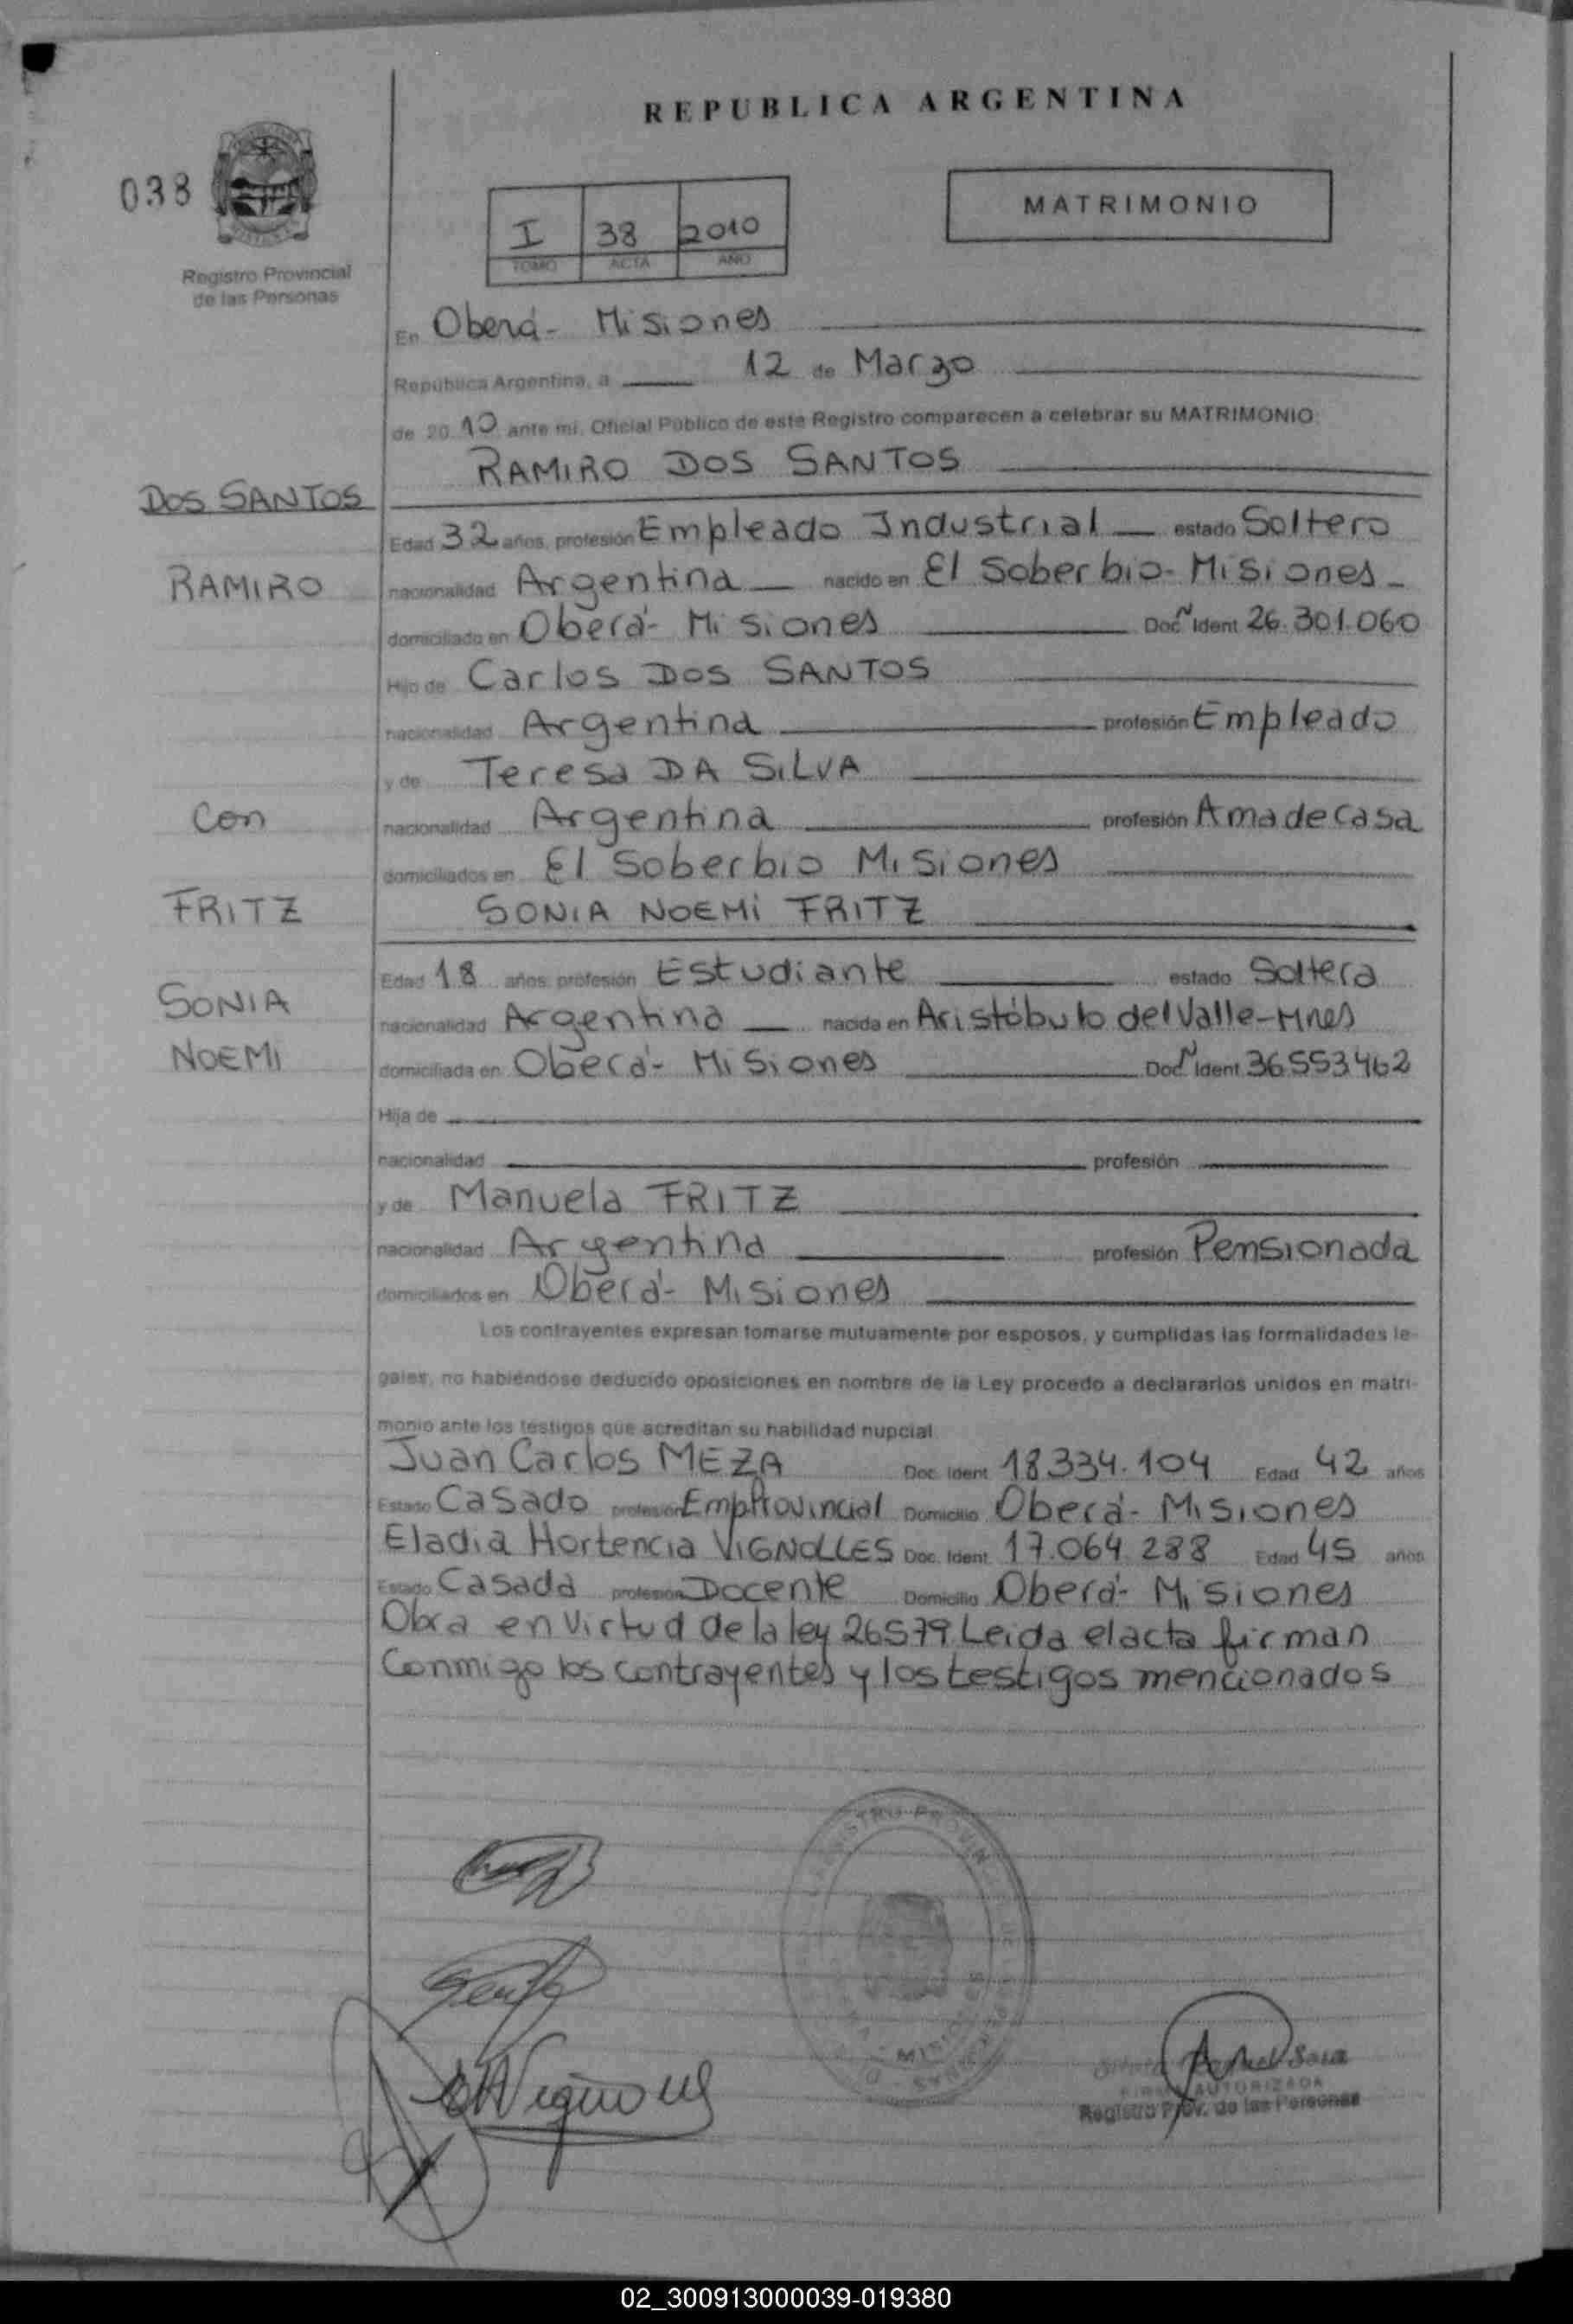 REPUBLICA ARGENTINA
038
I 38 2010
TOMO ACTA AÑO
MATRIMONIO
Registro Provincial
de las Personas
En Oberá- Misiones
República Argentina, a 12 de Marzo
de 2010 ante mi, Oficial Público de este Registro comparecen a celebrar su MATRIMONIO:
RAMIRO DOS SANTOS
DOS SANTOS
Edad 32 años, profesión Empleado Industrial estado Soltero
RAMIRO
nacionalidad Argentina nacido en El Soberbio- Misiones
domiciliado en Oberá- Misiones Doc N Ident 26.301.060
Hijo de Carlos DOS SANTOS
nacionalidad Argentina profesión Empleado
y de Teresa DA SILVA
Con
nacionalidad Argentina profesión Ama de casa
domiciliados en El Soberbio Misiones
FRITZ
SONIA NOEMI FRITZ
Edad 18 años, profesión Estudiante estado Soltera
SONIA
nacionalidad Argentina nacida en Aristóbulo del Valle-Mnes
NOEMI
domiciliada en Oberá- Misiones Doc N Ident 36553462
Hija de
nacionalidad profesión
y de Manuela FRITZ
nacionalidad Argentina profesión Pensionada
domiciliados en Oberá- Misiones
Los contrayentes expresan tomarse mutuamente por esposos, y cumplidas las formalidades le-
gales, no habiéndose deducido oposiciones en nombre de la Ley procedo a declararlos unidos en matri-
monio ante los testigos que acreditan su habilidad nupcial.
Juan Carlos MEZA Doc. Ident. 18334.104 Edad 42 años
Estado Casado profesión Emp Provincial Domicilio Oberá- Misiones
Eladia Hortencia VIGNOLLES Doc. Ident. 17.064.288 Edad 45 años
Estado Casada profesión Docente Domicilio Oberá- Misiones
Obra en virtud de la ley 26579 Leida el acta firman
Conmigo los contrayentes y los testigos mencionados
MISIONES
Sosa
AUTORIZADA
Registro Prov. de las Personas
02_300913000039-019380